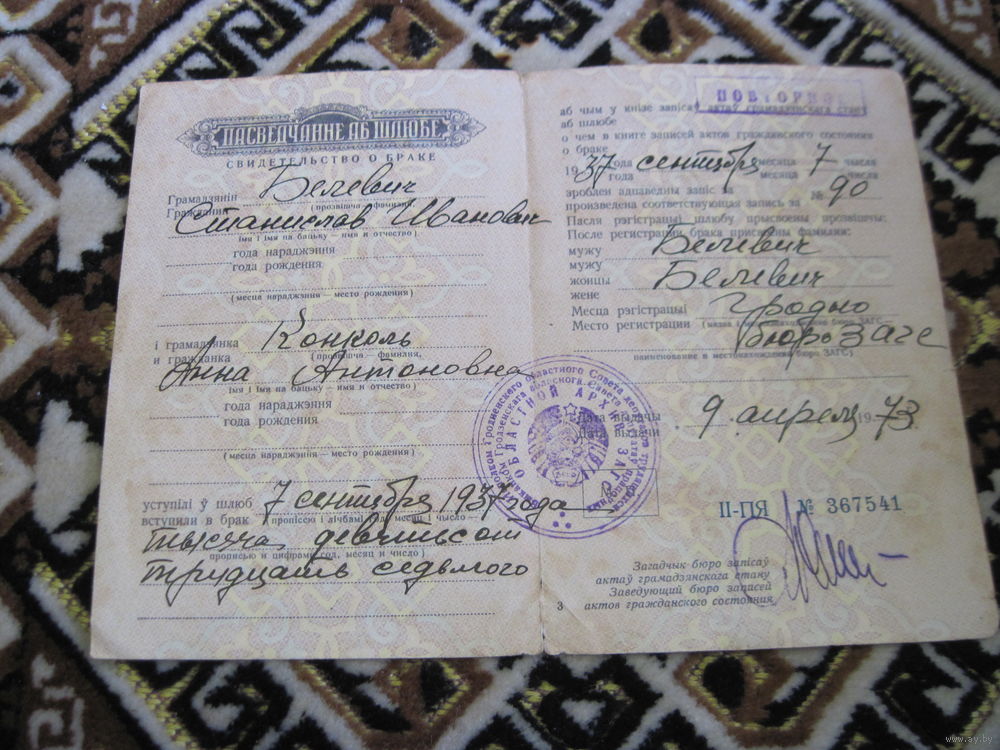 ПАСВЕДЧАННЕ АБ ШЛЮБЕ
СВИДЕТЕЛЬСТВО О БРАКЕ
Грамадзянін Белевич
Гражданин (прозвішча — фамилия,
Станислав Иванович
імя і імя па бацьку — имя и отчество)
года нараджэння
года рождения
(месца нараджэння — место рождения)
і грамадзянка Конколь
и гражданка (прозвішча — фамилия,
Анна Антоновна
імя і імя па бацьку — имя и отчество)
года нараджэння
года рождения
(месца нараджэння — место рождения)
уступілі ў шлюб 7 сентября 1937 года
вступили в брак (пропіссю і лічбамі год, месяц і число —
тысяча девятьсот
прописью и цифрами год, месяц и число)
тридцать седьмого
ПОВТОРНОЕ
аб чым у кнізе запісаў актаў грамадзянскага стану
аб шлюбе
о чем в книге записей актов гражданского состояния
о браке
1937 года сентября месяца 7 числа
года месяца числа
зроблен адпаведны запіс за № 90
произведена соответствующая запись за
Пасля рэгістрацыі шлюбу прысвоены прозвішчы:
После регистрации брака присвоены фамилии:
мужу Белевич
мужу
жонцы Белевич
жене
Месца рэгістрацыі Гродно
Место регистрации (назва і месцазнаходжанне бюро ЗАГС —
бюро ЗАГС
наименование и местонахождение бюро ЗАГС)
Дата выдачы 9 апреля 1973
Дата выдачи
ОБЛАСТНОЙ АРХИВ ЗАГС
II-ПЯ № 367541
Загадчык бюро запісаў
актаў грамадзянскага стану
Заведующий бюро записей
актов гражданского состояния
3
www.ay.by